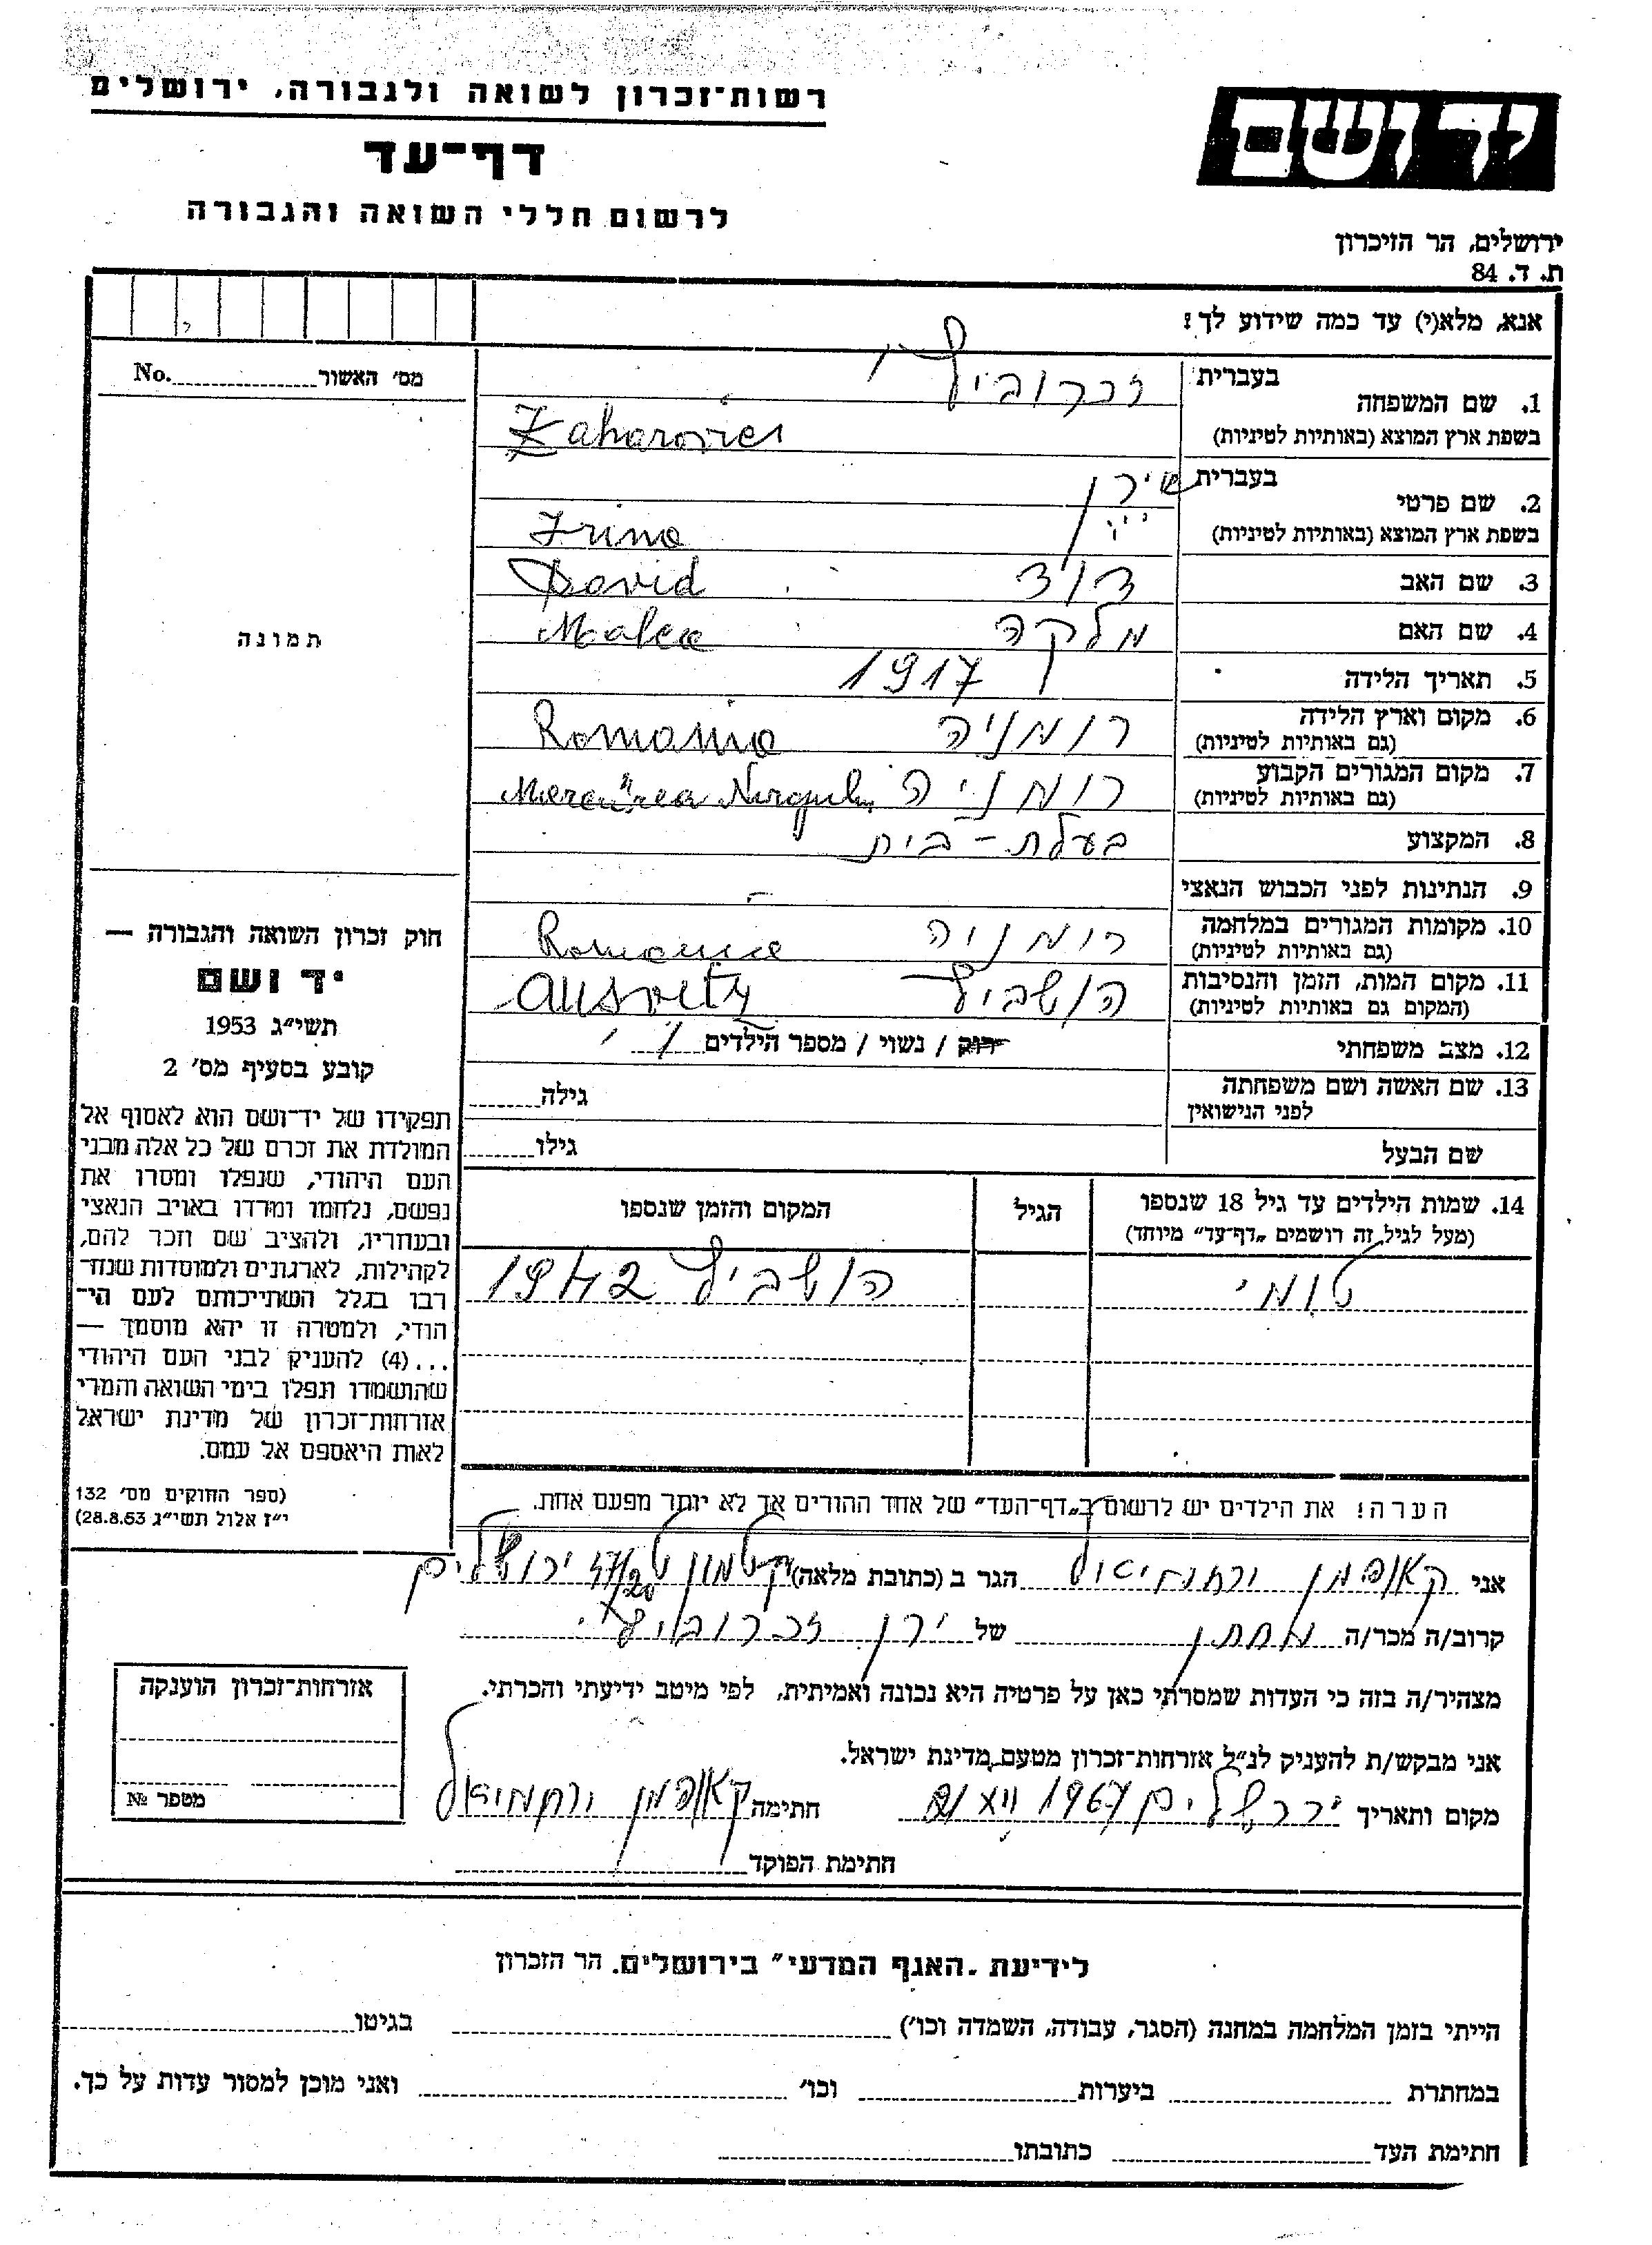 רשות־זכרון לשואה ולגבורה, ירושלים
דף־עד
לרשום חללי השואה והגבורה
יד ושם
ירושלים, הר הזיכרון
ת. ד. 84
אנא, מלא(י) עד כמה שידוע לך:
מס׳ האשור No.
1. שם המשפחה
בעברית
זכרוביץ
בשפת ארץ המוצא (באותיות לטיניות)
Zaharovici
2. שם פרטי
בעברית
בשפת ארץ המוצא (באותיות לטיניות)
Irina
3. שם האב
דוד David
4. שם האם
מלקה Malca
5. תאריך הלידה
1917
6. מקום וארץ הלידה
(גם באותיות לטיניות)
רומניה Romania
7. מקום המגורים הקבוע
(גם באותיות לטיניות)
רומניה
8. המקצוע
בעלת - בית
9. הנתינות לפני הכבוש הנאצי
–
10. מקומות המגורים במלחמה
(גם באותיות לטיניות)
רומניה Romania
11. מקום המות, הזמן והנסיבות
(המקום גם באותיות לטיניות)
הושביץ Ausvitz
12. מצב משפחתי
רוק / נשוי / מספר הילדים 1
13. שם האשה ושם משפחתה
לפני הנישואין
גילה
שם הבעל
גילו
14. שמות הילדים עד גיל 18 שנספו
(מעל לגיל זה רושמים „דף־עד” מיוחד)
הגיל
המקום והזמן שנספו
טומי
הושביץ 1942
הערה! את הילדים יש לרשום ב„דף־העד” של אחד ההורים אך לא יותר מפעם אחת.
תמונה
חוק זכרון השואה והגבורה —
יד ושם
תשי״ג 1953
קובע בסעיף מס׳ 2
תפקידו של יד־ושם הוא לאסוף אל
המולדת את זכרם של כל אלה מבני
העם היהודי, שנפלו ומסרו את
נפשם, נלחמו ומרדו באויב הנאצי
ובעוזריו, ולהציב שם וזכר להם,
לקהילות, לארגונים ולמוסדות שנח־
רבו בגלל השתייכותם לעם הי־
הודי, ולמטרה זו יהא מוסמך —
...(4) להעניק לבני העם היהודי
שהושמדו ונפלו בימי השואה והמרי
אזרחות־זכרון של מדינת ישראל
לאות היאספם אל עמם.
(ספר החוקים מס׳ 132
י״ז אלול תשי״ג 28.8.53)
אני קאופמן ירחמיאל הגר ב (כתובת מלאה) קטמון ט ירושלים
קרוב/ה מכר/ה מחתן של ירן זכרוביץ
מצהיר/ה בזה כי העדות שמסרתי כאן על פרטיה היא נכונה ואמיתית, לפי מיטב ידיעתי והכרתי.
אני מבקש/ת להעניק לנ״ל אזרחות־זכרון מטעם מדינת ישראל.
מקום ותאריך ירושלים 1967 חתימה קאופמן ירחמיאל
חתימת הפוקד
אזרחות־זכרון הוענקה
מספר №
לידיעת „האגף המדעי” בירושלים. הר הזכרון
הייתי בזמן המלחמה במחנה (הסגר, עבודה, השמדה וכו׳) בגיטו
במחתרת ביערות וכו׳ ואני מוכן למסור עדות על כך.
חתימת העד כתובתו